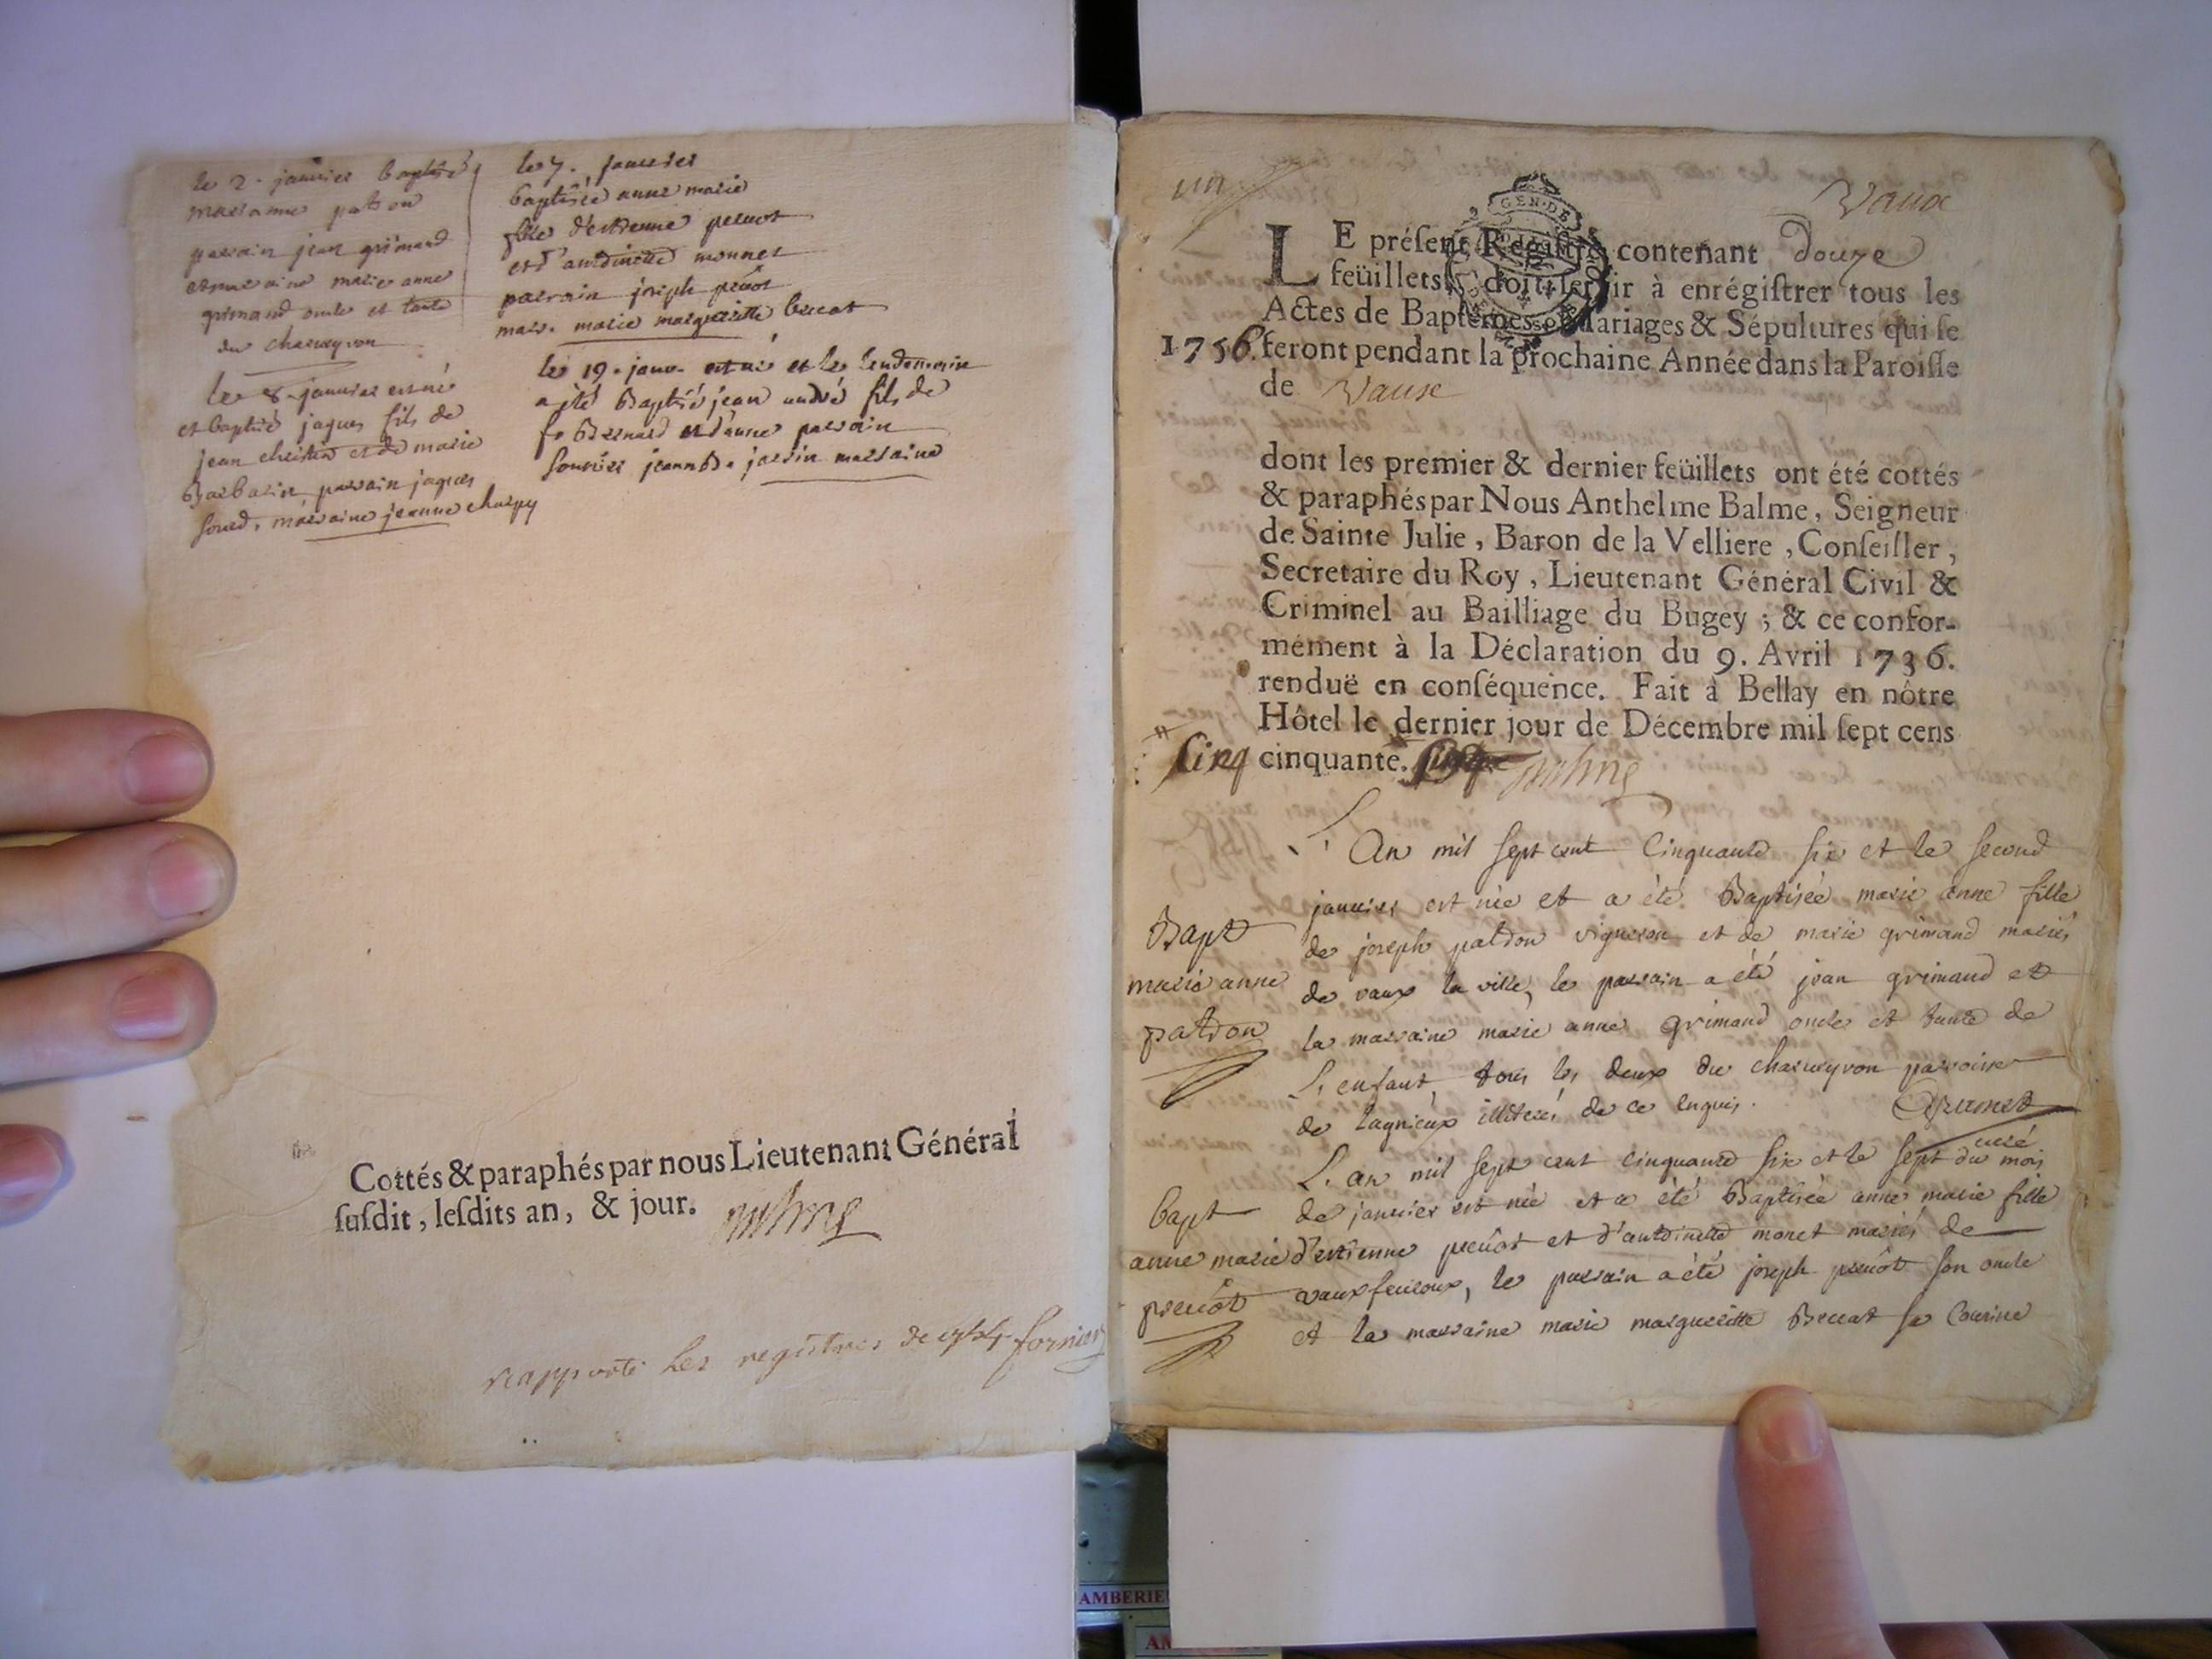 le 2. janvier baptisé
marianne patron
parrain jean grimand
et marraine marie anne
grimand oncle et tante
du charveyron
le 8 janvier est né
et baptisé jaques fils de
jean et de marie
Barbarin parrain jaques
marraine jeanne charpy
le 7. janvier
baptisée anne marie
fille d'estienne preuot
et d'antoinette monnet
parrain joseph preûot
marr. marie margueritte beccat
le 19. janv. est né et le lendemain
a été Baptisé jean andré fils de
fr Bernard et d'anne parrain
marraine
Cottés & paraphés par nous Lieutenant Général
susdit, lesdits an, & jour.
rapporté les registres de 1754 fornier
un
Vaux
LE présent Registre contenant douze
feüillets, doit servir à enrégistrer tous les
Actes de Baptêmes, Mariages & Sépultures qui se
1756. feront pendant la prochaine Année dans la Paroisse
de Vaux
dont les premier & dernier feüillets ont été cottés
& paraphés par Nous Anthelme Balme, Seigneur
de Sainte Julie, Baron de la Velliere, Conseiller,
Secretaire du Roy, Lieutenant Général Civil &
Criminel au Bailliage du Bugey ; & ce confor-
mément à la Déclaration du 9. Avril 1736.
renduë en conséquence. Fait à Bellay en nôtre
Hôtel le dernier jour de Décembre mil sept cens
cinq cinquante.
L'An mil sept cent Cinquante six et le second
janvier est née et a été Baptisée marie anne fille
de joseph patron vigneron et de marie grimand mariés
de vaux la ville, le parrain a été jean grimand et
la marraine marie anne grimand oncle et tante de
L'enfant tous les deux du charveyron parroisse
de lagnieux illiterés de ce enquis.
curé
Bapt
marie anne
patron
L'an mil sept cent cinquante six et le sept du mois
de janvier est née et a été Baptisée anne marie fille
d'estienne preûot et d'antoinette monet mariés de
vauxfeuroux, le parrain a été joseph preuôt son oncle
et la marraine marie margueritte Beccat sa Cousine
bapt
anne marie
preuôt
AMBERIE